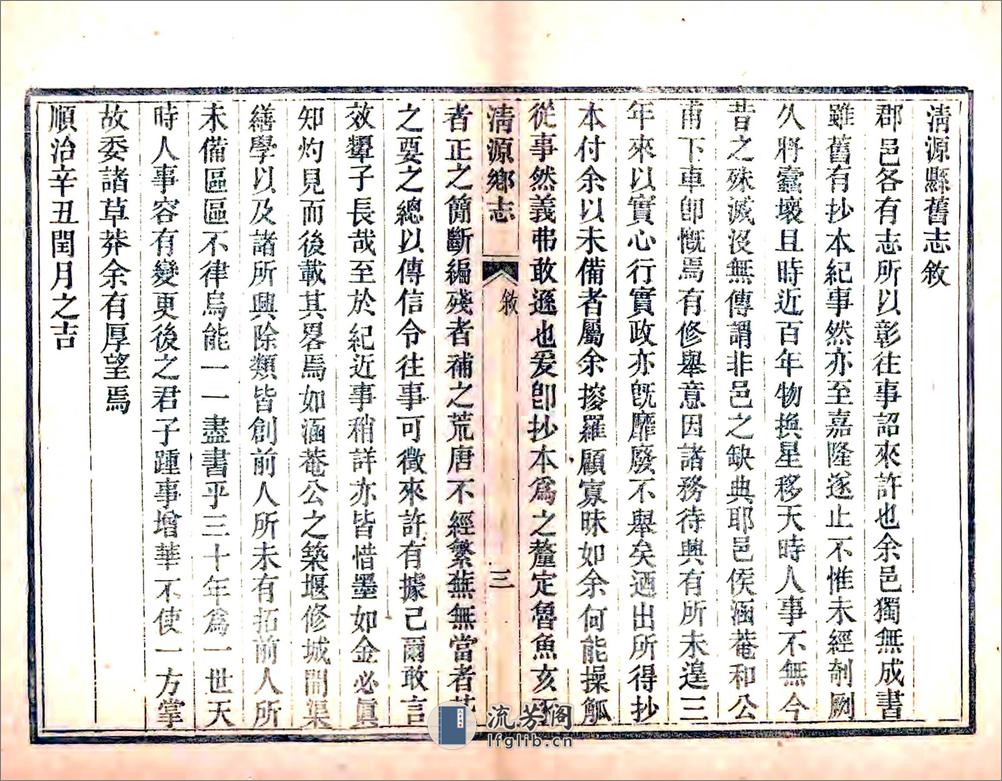 清源縣舊志敘
郡邑各有志所以彰往事詔來許也余邑獨無成書
雖舊有抄本紀事然亦至嘉隆遂止不惟未經剞劂
久將蠹壞且時近百年物換星移天時人事不無今
昔之殊滅沒無傳謂非邑之缺典耶邑侯涵菴和公
甫下車卽慨焉有修舉意因諸務待興有所未遑三
年來以實心行實政亦旣靡廢不舉矣迺出所得抄
本付余以未備者屬余搜羅顧寡昧如余何能操觚
從事然義弗敢遜也爰卽抄本爲之釐定魯魚亥豕
清源鄉志
敘
三
者正之簡斷編殘者補之荒唐不經繁蕪無當者芟
之要之總以傳信令往事可徵來許有據已爾敢言
效顰子長哉至於紀近事稍詳亦皆惜墨如金必眞
知灼見而後載其畧焉如涵菴公之築堰修城開渠
繕學以及諸所興除類皆創前人所未有拓前人所
未備區區不律烏能一一盡書乎三十年爲一世天
時人事容有變更後之君子踵事增華不使一方掌
故委諸草莽余有厚望焉
順治辛丑閏月之吉
流芳阁
lfglib.cn